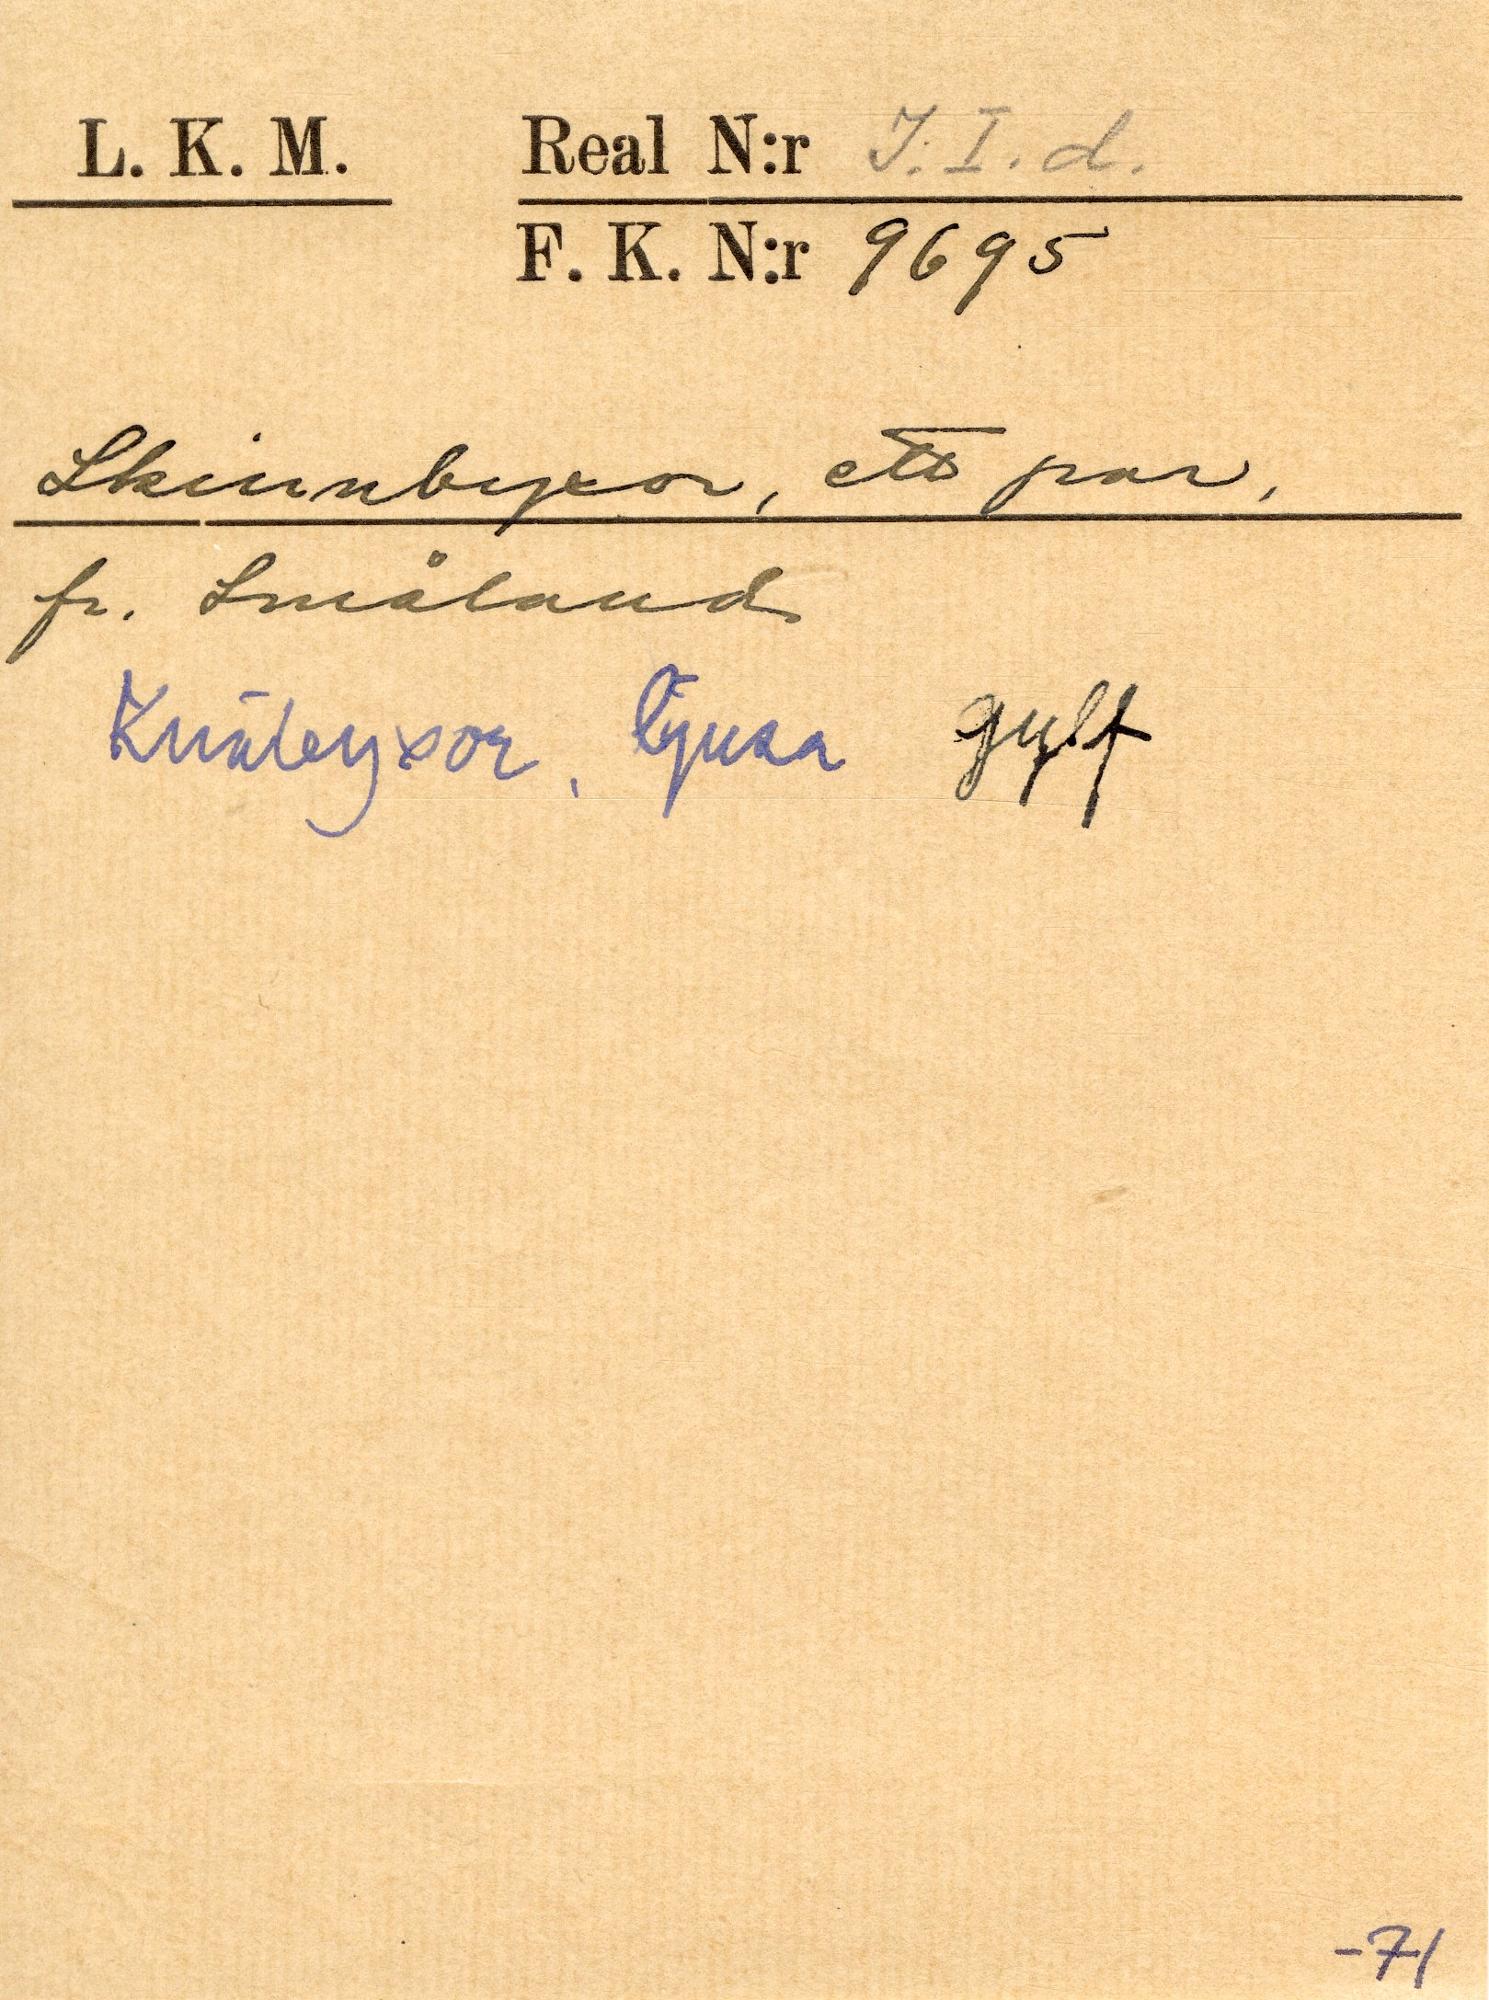 L. K. M. Real N:r I. I. d.
F. K. N:r 9695
Skinnbyxor, ett par,
fr. Småland
Knäbyxor, ljusa gylf
-71